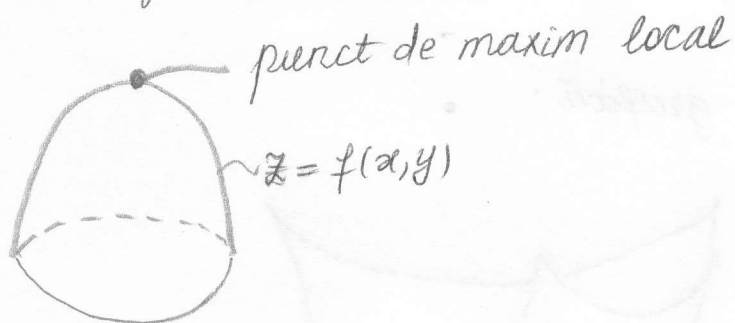 punct de maxim local
z = f(x,y)